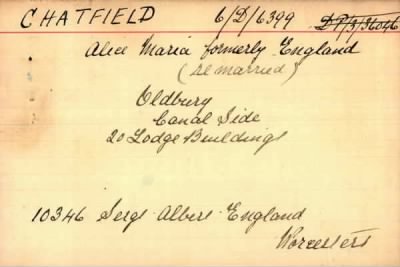 CHATFIELD 6/D/6399 DP/3/36046
Alice Maria formerly England
(re married)
Oldbury
Canal Side
20 Lodge Buildings
10346 Sergt Albert England
Worcesters